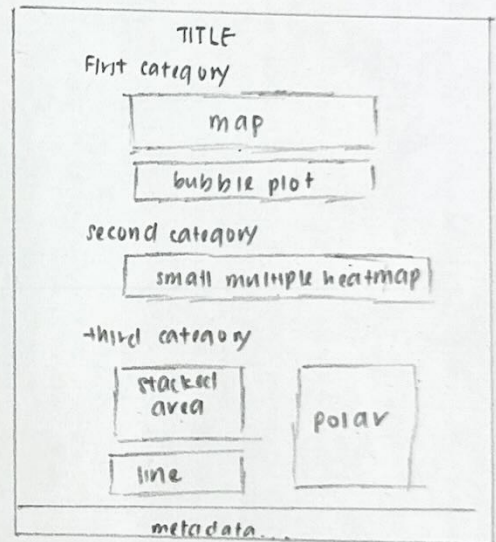 TITLE
First category
map
bubble plot
second category
small multiple heatmap
third category
stacked
area
polar
line
metadata...